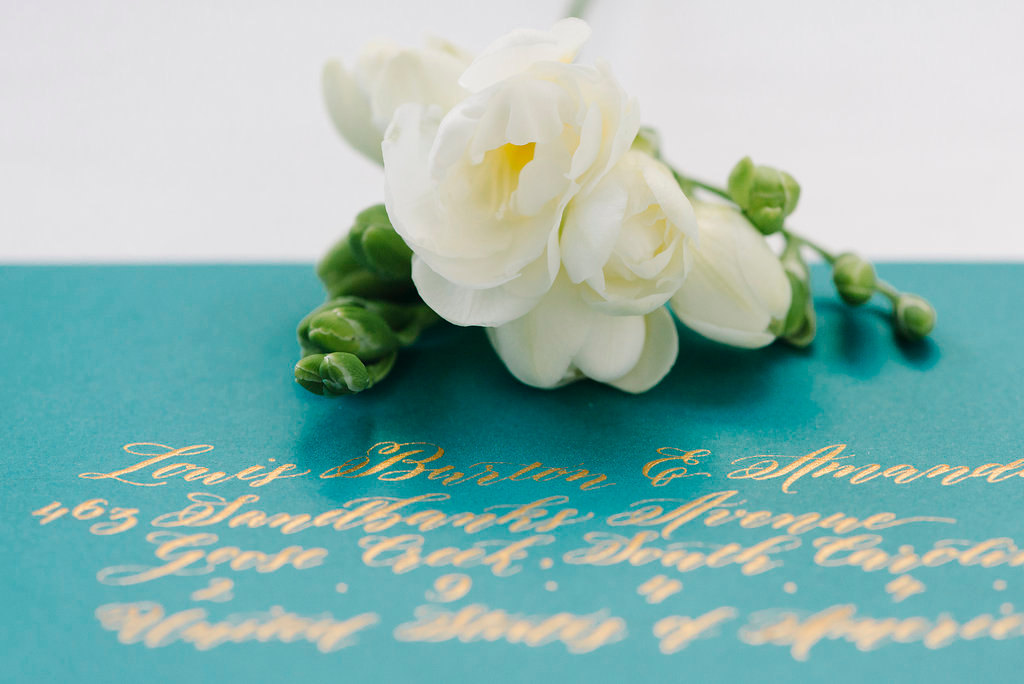 Louis Burton & Amanda
463 Sandbanks Avenue
Goose Creek. South Carolin
2 . 9 . 4 . 4 .
United States of Americ